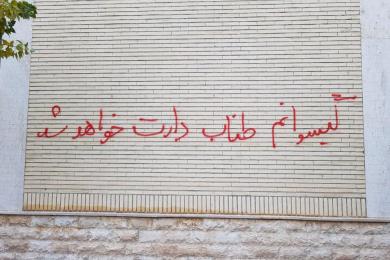 گیسوانم طناب دارت خواهد شد